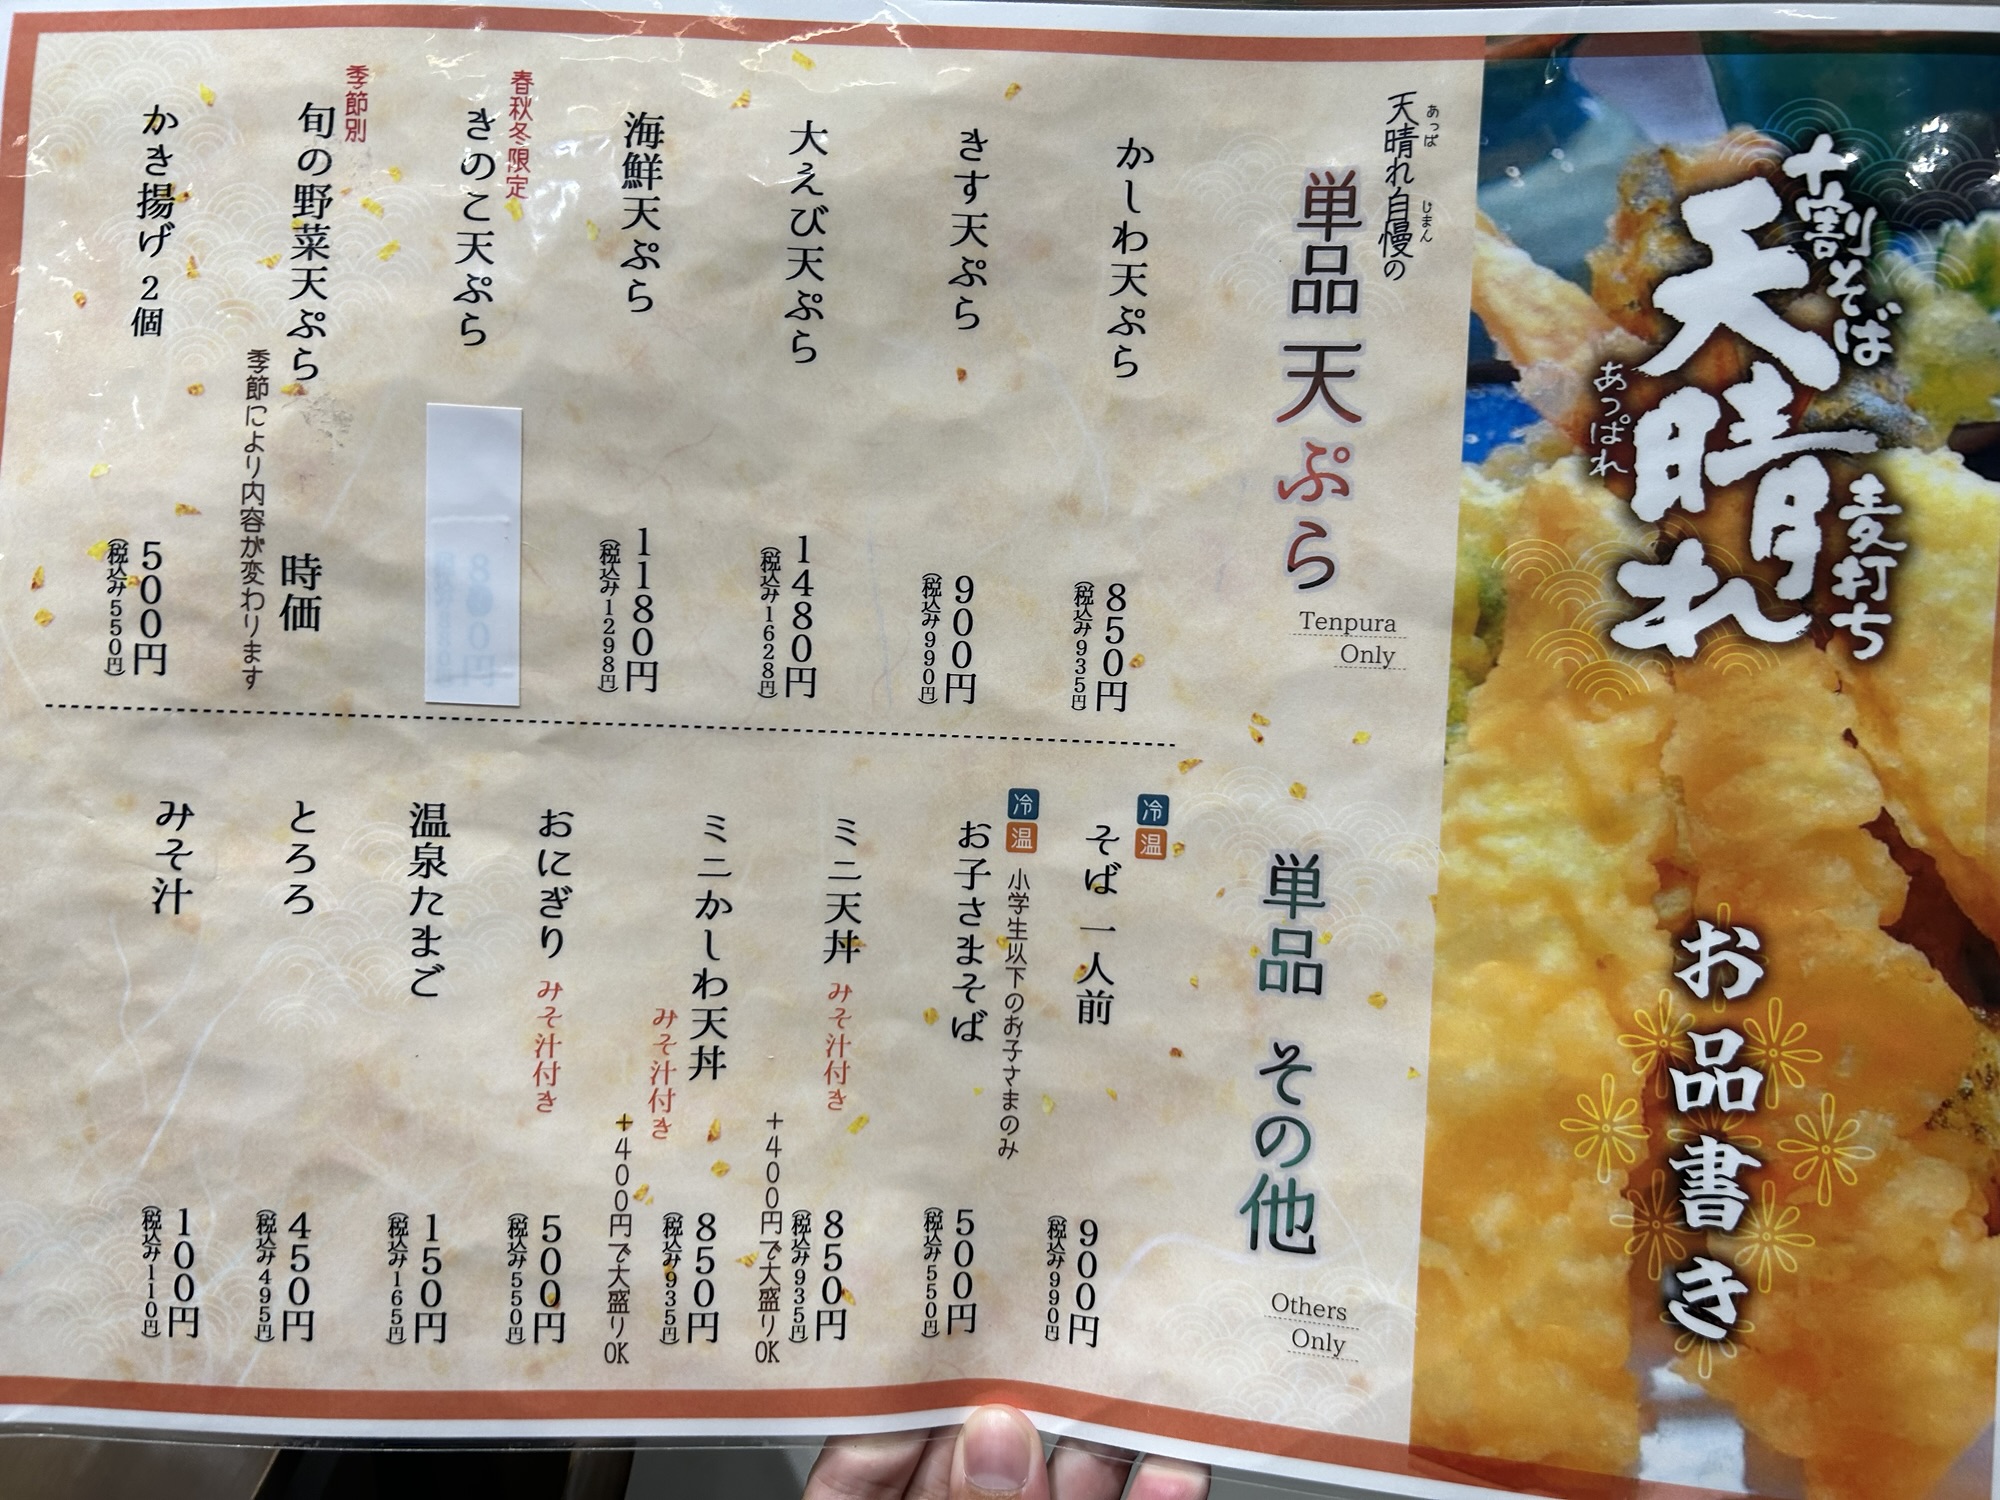 十割そば
天晴れ
あっぱれ
麦打ち
お品書き
天晴れ自慢の
あっぱ
じまん
単品天ぷら
Tenpura
Only
かしわ天ぷら
850円
(税込み935円)
きす天ぷら
900円
(税込み990円)
大えび天ぷら
1480円
(税込み1628円)
海鮮天ぷら
1180円
(税込み1298円)
春秋冬限定
きのこ天ぷら
季節別
旬の野菜天ぷら
時価
季節により内容が変わります
かき揚げ 2個
500円
(税込み550円)
単品 その他
Others
Only
冷
温
そば 一人前
900円
(税込み990円)
冷
温
小学生以下のお子さまのみ
お子さまそば
500円
(税込み550円)
ミニ天丼 みそ汁付き
850円
(税込み935円)
+400円で大盛りOK
ミニかしわ天丼
みそ汁付き
850円
(税込み935円)
+400円で大盛りOK
おにぎり みそ汁付き
500円
(税込み550円)
温泉たまご
150円
(税込み165円)
とろろ
450円
(税込み495円)
みそ汁
100円
(税込み110円)